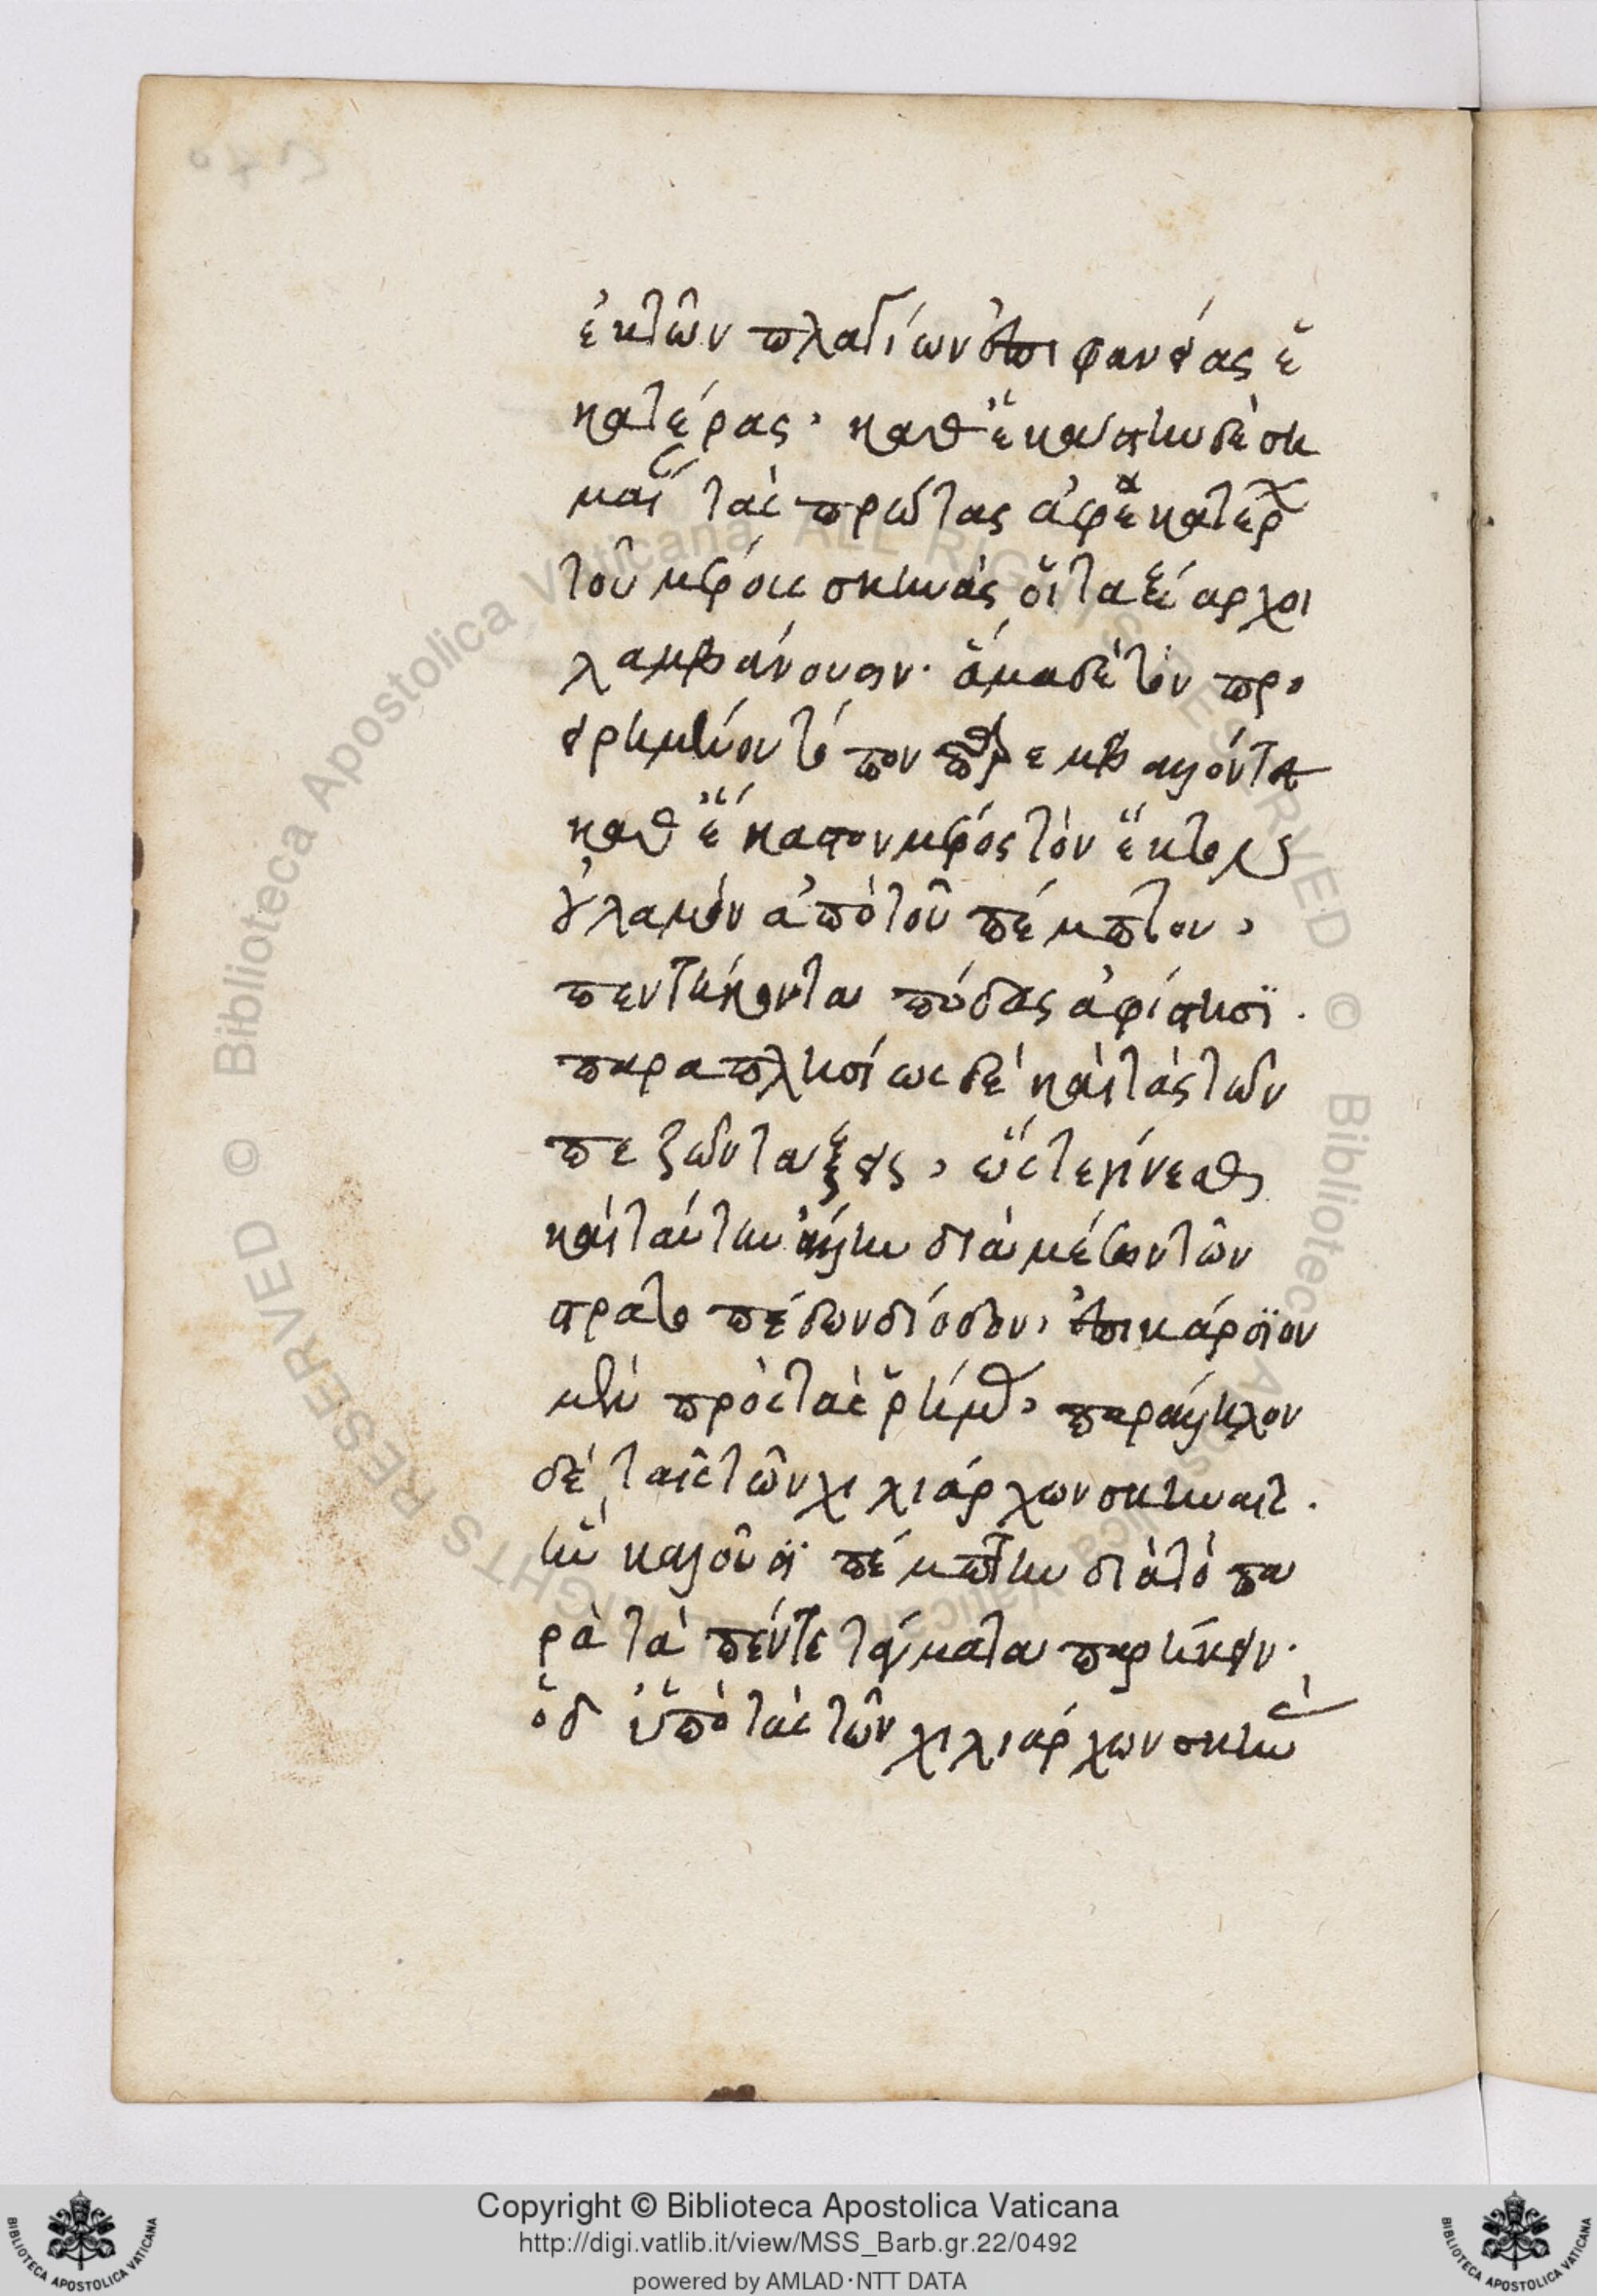 ἐκ τῶν πλαγίων ἐπιφανείας ἑ
κατέρας, καθ' ἑκάστην δὲ ση
μαίαν τὰς πρώτας ἀφ' ἑκατέρου
τοῦ μέρους σκηνὰς οἱ ταξίαρχοι
λαμβάνουσιν. ἅμα δὲ τὸν προ
ειρημένον τρόπον παρεμβαλόντες
καθ' ἕκαστον μέρος τὸν ἕκτον
οὐλαμὸν ἀπὸ τοῦ πέμπτου,
πεντήκοντα πόδας ἀφίστησι.
παραπλησίως δὲ καὶ τὰς τῶν
πεζῶν τάξεις, ὥστε γίνεσθαι
καὶ ταύτην ἄλλην διὰ μέσων τῶν
στρατοπέδων δίοδον, ἐπικάρσιον
μὲν πρὸς τὰς ῥύμας, παράλληλον
δὲ ταῖς τῶν χιλιάρχων σκηναῖς.
ἣν καλοῦσι πέμπτην διὰ τὸ πα
ρὰ τὰ πέντε τάγματα παρήκειν.
ὁ δ' ὑπὸ τὰς τῶν χιλιάρχων σκηνὰς
Copyright © Biblioteca Apostolica Vaticana
http://digi.vatlib.it/view/MSS_Barb.gr.22/0492
powered by AMLAD·NTT DATA